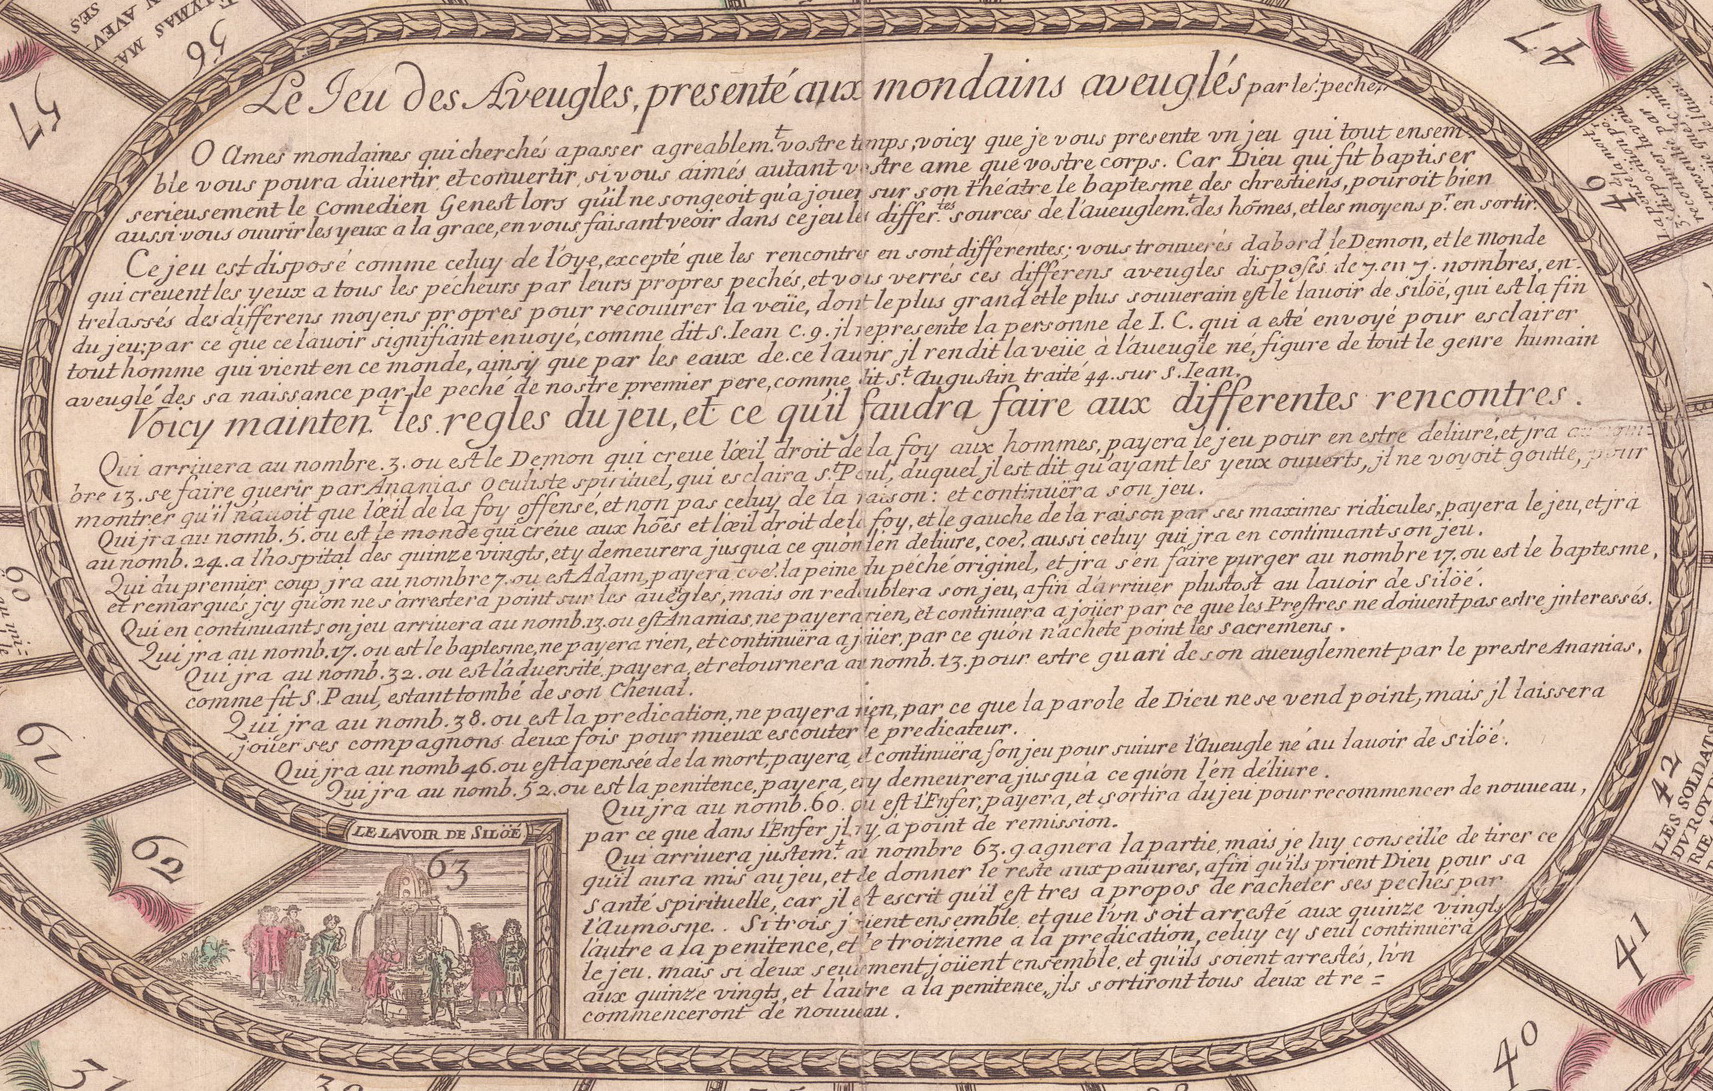 Le Jeu des Aveugles, presenté aux mondains aveuglés par les pechez
O Ames mondaines qui cherchés a passer agreablem.t vostre temps, voicy que je vous presente vn jeu qui tout ensem-
ble vous poura diuertir et conuertir, si vous aimés autant vostre ame que vostre corps. Car Dieu qui fit baptiser
serieusement le Comedien Genest lors qu'il ne songeoit qu'a jouer sur son theatre le baptesme des chrestiens, pouroit bien
aussi vous ouurir les yeux a la grace, en vous faisant veoir dans ce jeu les differ.tes sources de l'aueuglem.t des hōmes, et les moyens p.r en sortir.
Ce jeu est disposé comme celuy de l'oye, excepté que les rencontres en sont differentes; vous trouuerés dabord le Demon, et le Monde
qui creuent les yeux a tous les pecheurs par leurs propres pechés, et vous verrés ces differens aveugles disposés de 7. en 7. nombres, en-
trelassés des differens moyens propres pour recouurer la veüe, dont le plus grand et le plus souuerain est le lauoir de siloé, qui est la fin
du jeu: par ce que ce lauoir signifiant enuoyé, comme dit S. Iean C. 9. jl represente la personne de I. C. qui a esté envoyé pour esclairer
tout homme qui vient en ce monde, ainsy que par les eaux de ce lauoir jl rendit la veüe à l'aueugle né, figure de tout le genre humain
aveuglé des sa naissance par le peché de nostre premier pere, comme dit s.t Augustin traité 44. sur S. Iean.
Voicy mainten.t les regles du jeu, et ce qu'il faudra faire aux differentes rencontres.
Qui arriuera au nombre 3. ou est le Demon qui creue l'œil droit de la foy aux hommes, payera le jeu pour en estre deliuré, et jra au nom-
bre 13. se faire guerir par Ananias Oculiste spirituel, qui esclaira s.t Paul, duquel jl est dit qu'ayant les yeux ouuerts, jl ne voyoit goutte, pour
montrer qu'il n'auoit que l'œil de la foy offensé, et non pas celuy de la raison: et continuëra son jeu.
Qui jra au nomb. 5. ou est le monde qui créue aux hōes et l'œil droit de la foy, et le gauche de la raison par ses maximes ridicules, payera le jeu, et jra
au nomb. 24. a l'hospital des quinze vingts, et y demeurera jusqu'a ce qu'on l'en deliure, coē. aussi celuy qui jra en continuant son jeu.
Qui du premier coup jra au nombre 7. ou est Adam, payera coē. la peine du peché originel, et jra s'en faire purger au nombre 17. ou est le baptesme,
et remarqués jcy qu'on ne s'arrestera point sur les aueugles, mais on redoublera son jeu, afin d'arriuer plustost au lauoir de Siloé.
Qui en continuant son jeu arriuera au nomb. 13. ou est Ananias, ne payera rien, et continuera a joüer par ce que les Prestres ne doiuent pas estre jnteressés.
Qui jra au nomb. 17. ou est le baptesme, ne payera rien, et continuëra a joüer, par ce qu'on n'achete point les sacremens.
Qui jra au nomb. 32. ou est l'aduersité, payera, et retournera au nomb. 13. pour estre guari de son aueuglement par le prestre Ananias,
comme fit S. Paul, estant tombé de son Cheual.
Qui jra au nomb. 38. ou est la predication, ne payera rien, par ce que la parole de Dieu ne se vend point, mais jl laissera
joüer ses compagnons deux fois pour mieux escouter le predicateur.
Qui jra au nomb 46. ou est la pensée de la mort, payera, et continuëra son jeu pour suiure l'Aueugle né au lauoir de siloé.
Qui jra au nomb. 52. ou est la penitence, payera, et y demeurera jusqu'a ce qu'on l'en déliure.
Qui jra au nomb. 60. ou est l'Enfer, payera, et sortira du jeu pour recommencer de nouueau,
par ce que dans l'Enfer jl n'y a point de remission.
Qui arriuera justem.t au nombre 63. gagnera la partie, mais je luy conseille de tirer ce
qu'il aura mis au jeu, et le donner le reste aux pauures, afin qu'ils prient Dieu pour sa
santé spirituelle, car jl est escrit qu'il est tres a propos de racheter ses pechés par
l'aumosne. Si trois joüent ensemble, et que l'vn soit arresté aux quinze vingts
l'autre a la penitence, et le troizieme a la predication, celuy cy seul continuëra
le jeu. mais si deux seulement joüent ensemble, et qu'ils soient arrestés, l'vn
aux quinze vingts, et l'autre a la penitence, jls sortiront tous deux et re=
commenceront de nouueau.
LE LAVOIR DE SILOÉ
63
56
57
60
61
62
47
46
42
LES SOLDATS
DV ROY
41
40